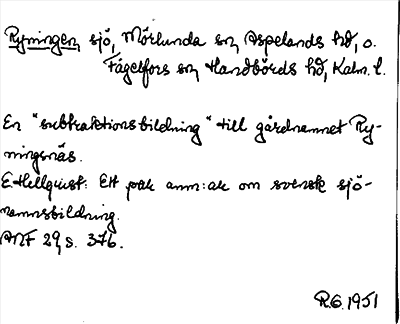 Ryningen, sjö, Mörlunda sn, Aspelands hd, o.
Fågelfors sn, Handbörds hd, Kalm. l.
En "subtraktionsbildning" till gårdnamnet Ry-
ningsnäs.
E. Hellquist: Ett par anm:ar om svensk sjö-
namnsbildning.
ANF 29, s. 376.
R.G. 1951